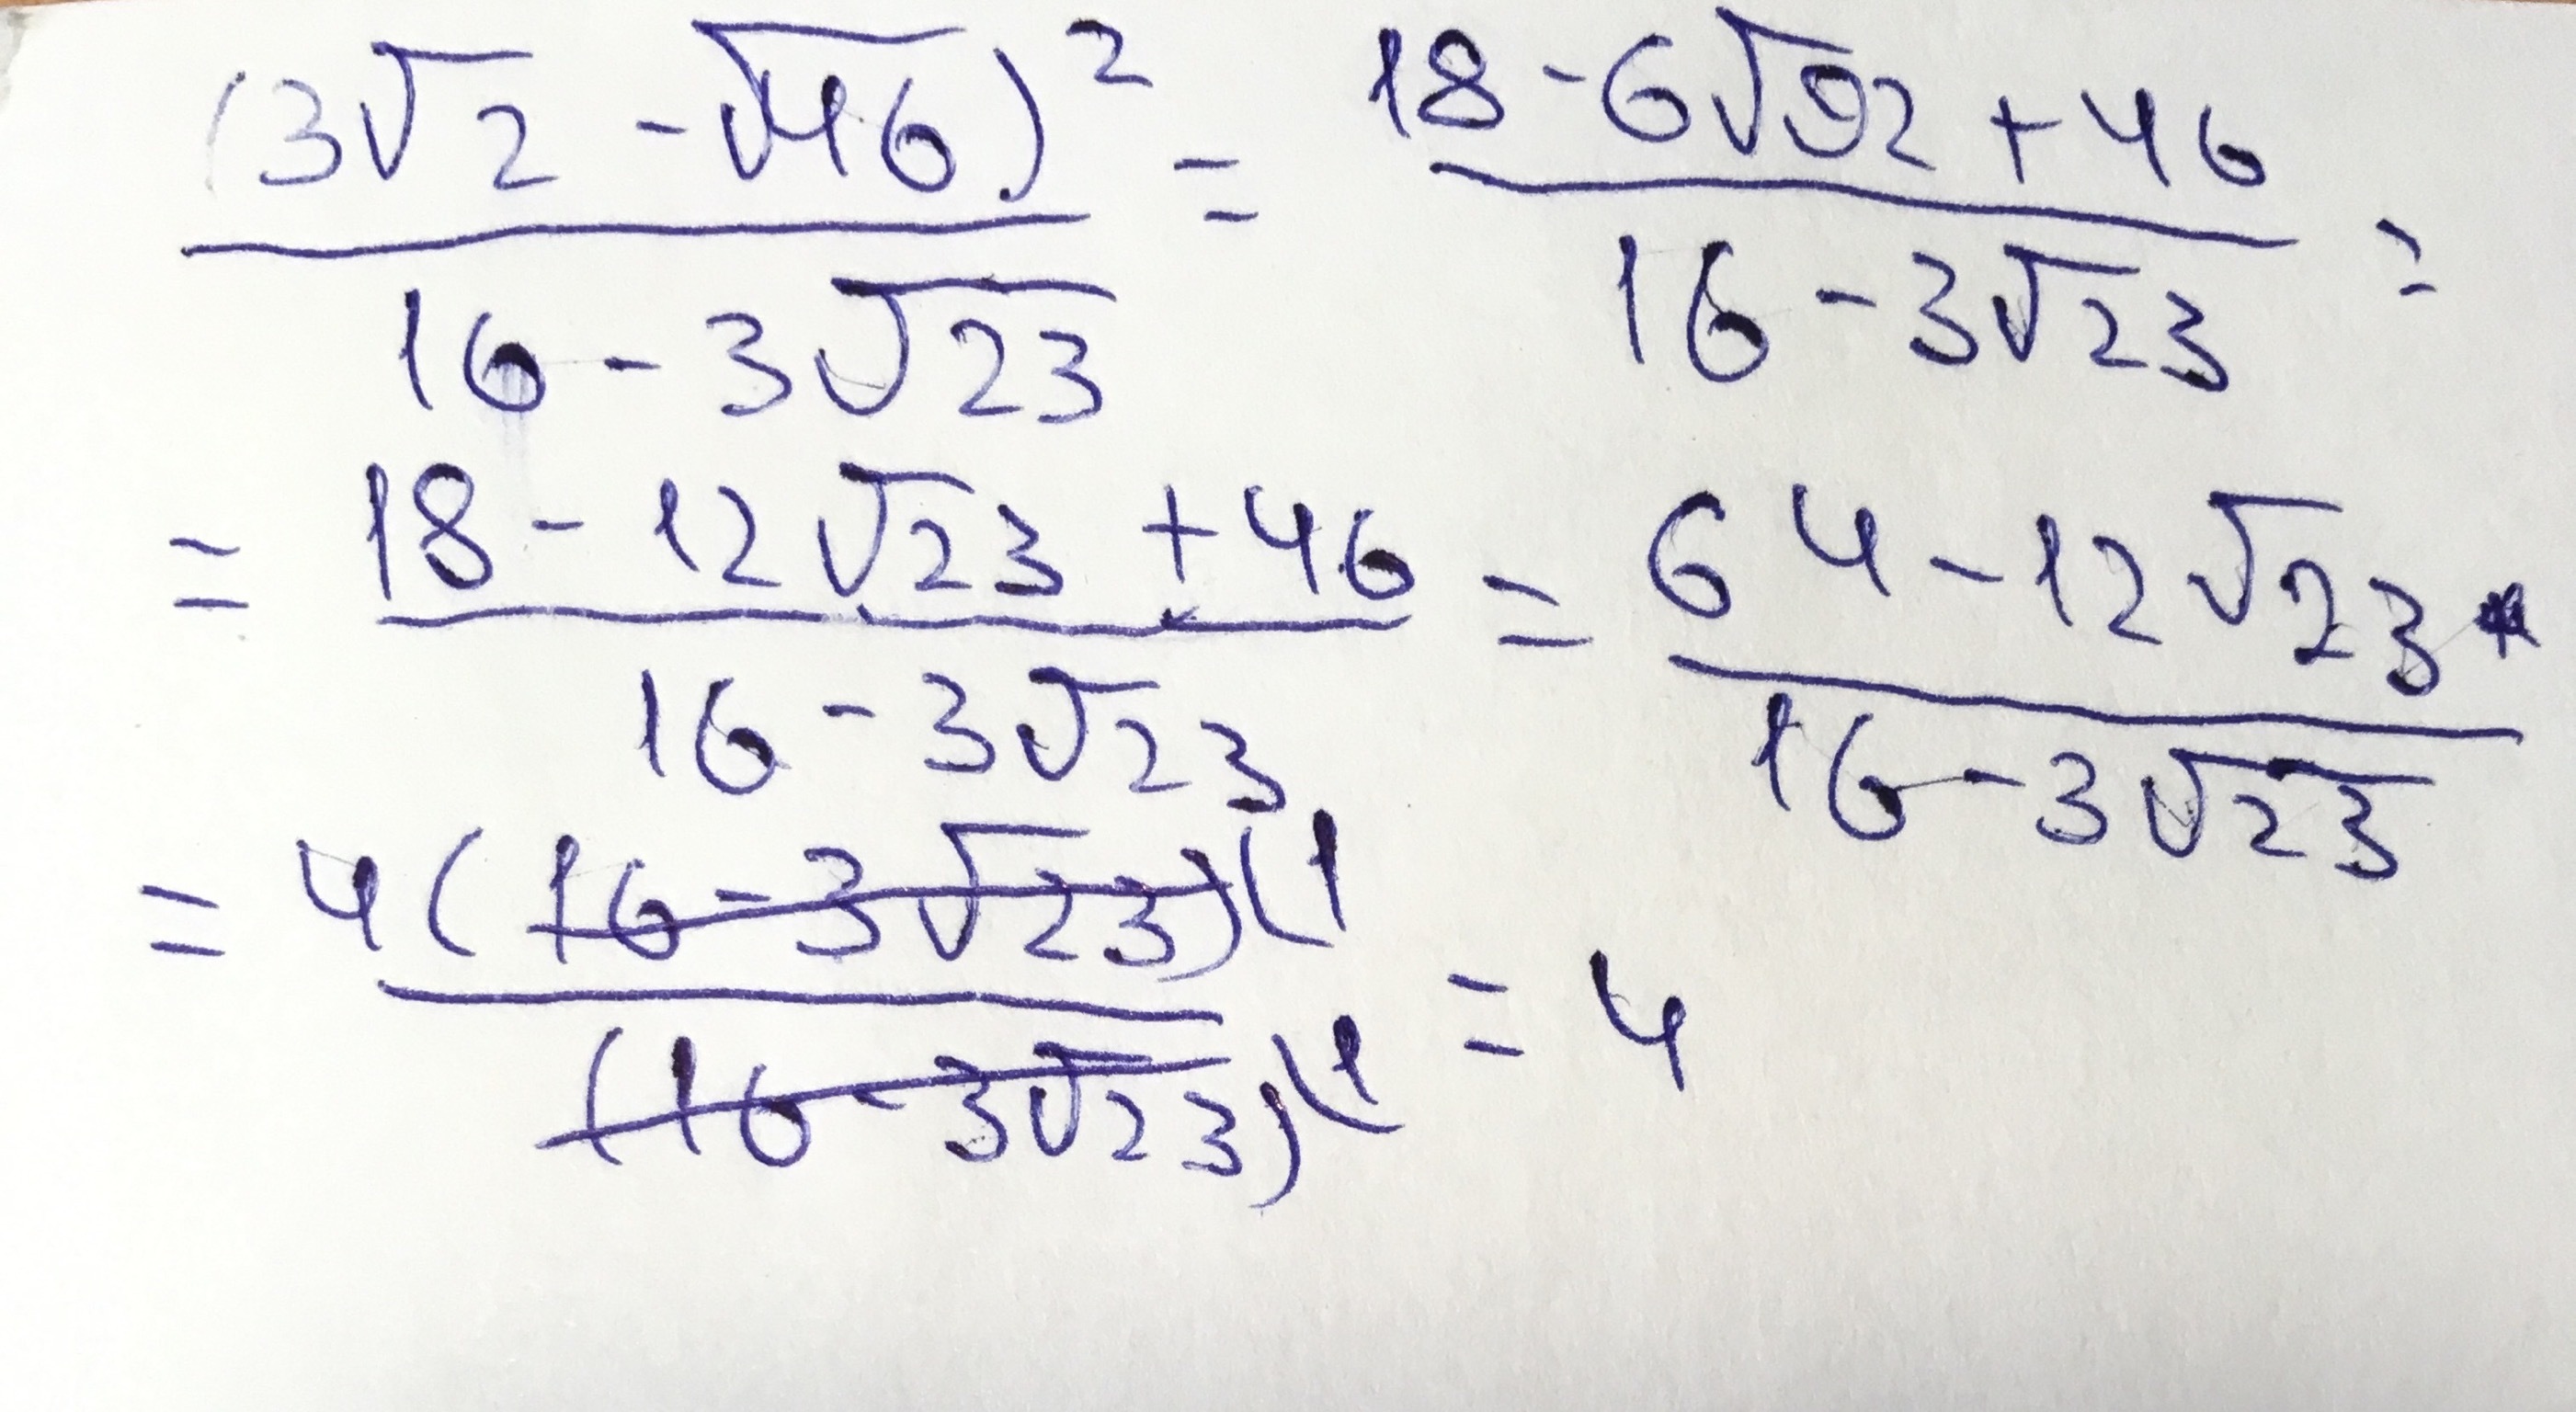 (3√2 - √46)² / (16 - 3√23) = (18 - 6√92 + 46) / (16 - 3√23) =
= (18 - 12√23 + 46) / (16 - 3√23) = (64 - 12√23) / (16 - 3√23)
= 4(16 - 3√23)(1 / (16 - 3√23)(1 = 4